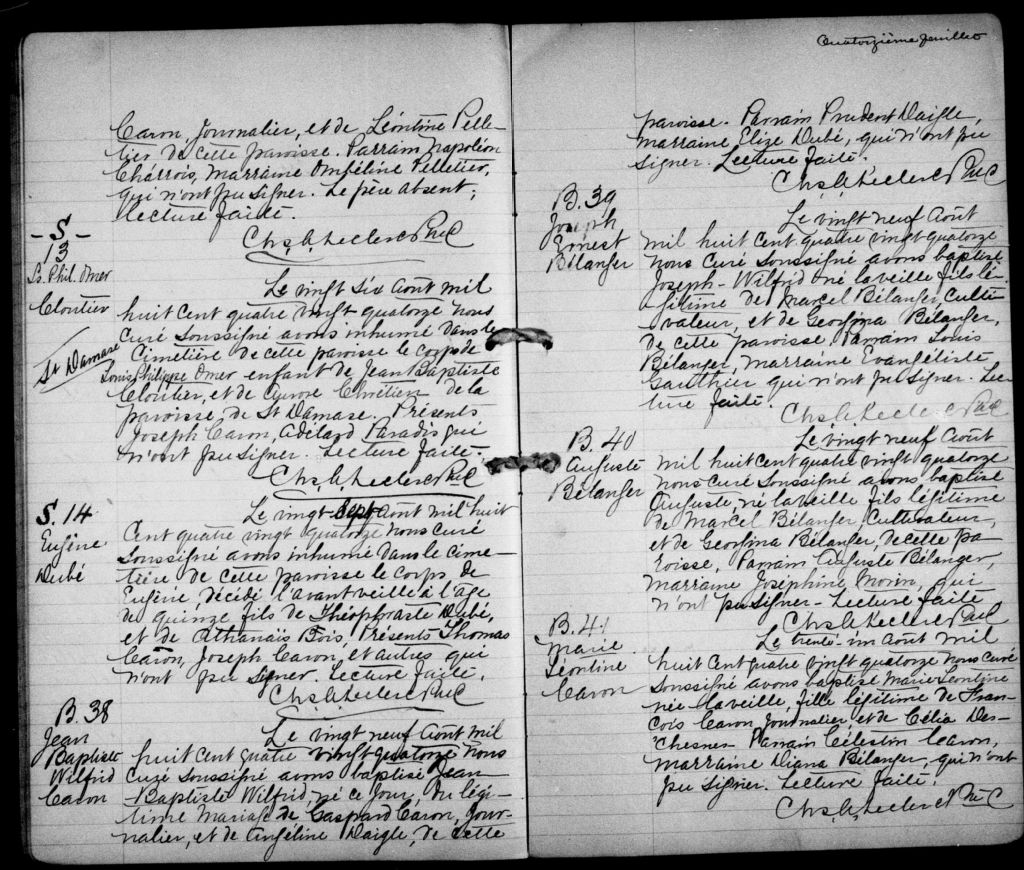 Caron, Journalier, et de Léontine Pelle-
tier de cette paroisse. Parrain Napoléon
Charrois, Marraine Ombéline Pelletier,
qui n'ont pu signer. Le père absent,
Lecture faite.
Chs. A. Leclerc Ptre C
- S -
13
Ls. Phil. Omer
Cloutier
St Damase
Le vingt six Aout mil
huit cent quatre vingt quatorze nous
Curé soussigné avons inhumé dans le
Cimetière de cette paroisse le corps de
Louis Philippe Omer enfant de Jean Baptiste
Cloutier, et de Chrétien de la
paroisse de St Damase. Présents
Joseph Caron, Adélard Paradis qui
n'ont pu signer. Lecture faite.
Chs. A. Leclerc Ptre C
S. 14
Eugène
Dubé
Le vingt sept aout mil huit
Cent quatre vingt quatorze nous curé
Soussigné avons inhumé dans le cime-
tière de cette paroisse le corps de
Eugène, décédé l'avant veille à l'âge
de quinze fils de Théophraste Dubé,
et de Athanais Bois, Présents Thomas
Caron, Joseph Caron, et autres qui
n'ont pu signer. Lecture faite.
Chs. A. Leclerc Ptre C
B. 38
Jean
Baptiste
Wilfrid
Caron
Le vingt neuf Aout mil
huit cent quatre vingt quatorze nous
Curé soussigné avons baptisé Jean
Baptiste Wilfrid né ce jour, du légi-
time mariage de Gaspard Caron, Jour-
nalier, et de Angéline Daigle, de cette
Quatorzième feuillet
paroisse. Parrain Prudent Daigle,
Marraine Elize Dubé, qui n'ont pu
signer. Lecture faite.
Chs. A. Leclerc Ptre C
B. 39
Joseph
Ernest
Bélanger
Le vingt neuf Aout
mil huit cent quatre vingt quatorze
nous Curé soussigné avons baptisé
Joseph-Wilfrid né la veille fils lé-
gitime de Marcel Bélanger, Culti-
vateur, et de Georgina Bélanger,
de cette paroisse Parrain Louis
Bélanger, Marraine Evangéliste
Gauthier qui n'ont pu signer. Lec-
ture faite.
Chs. A. Leclerc Ptre C
B. 40
Auguste
Bélanger
Le vingt neuf Aout
mil huit cent quatre vingt quatorze
nous curé soussigné avons baptisé
Auguste, né la veille fils légitime
de Marcel Bélanger, Cultivateur,
et de Georgina Bélanger, de cette pa-
roisse, Parrain Auguste Bélanger,
Marraine Joséphine Morin, qui
n'ont pu signer - Lecture faite
Chs. A. Leclerc Ptre C
B. 41
Marie
Léontine
Caron
Le trente-un Aout mil
huit cent quatre vingt quatorze nous curé
soussigné avons baptisé Marie Léontine
née la veille, fille légitime de Fran-
çois Caron, Journalier, et de Célia Des-
chesnes Parrain Célestin Caron,
Marraine Diana Bélanger, qui n'ont
pu signer. Lecture faite.
Chs. A. Leclerc Ptre C